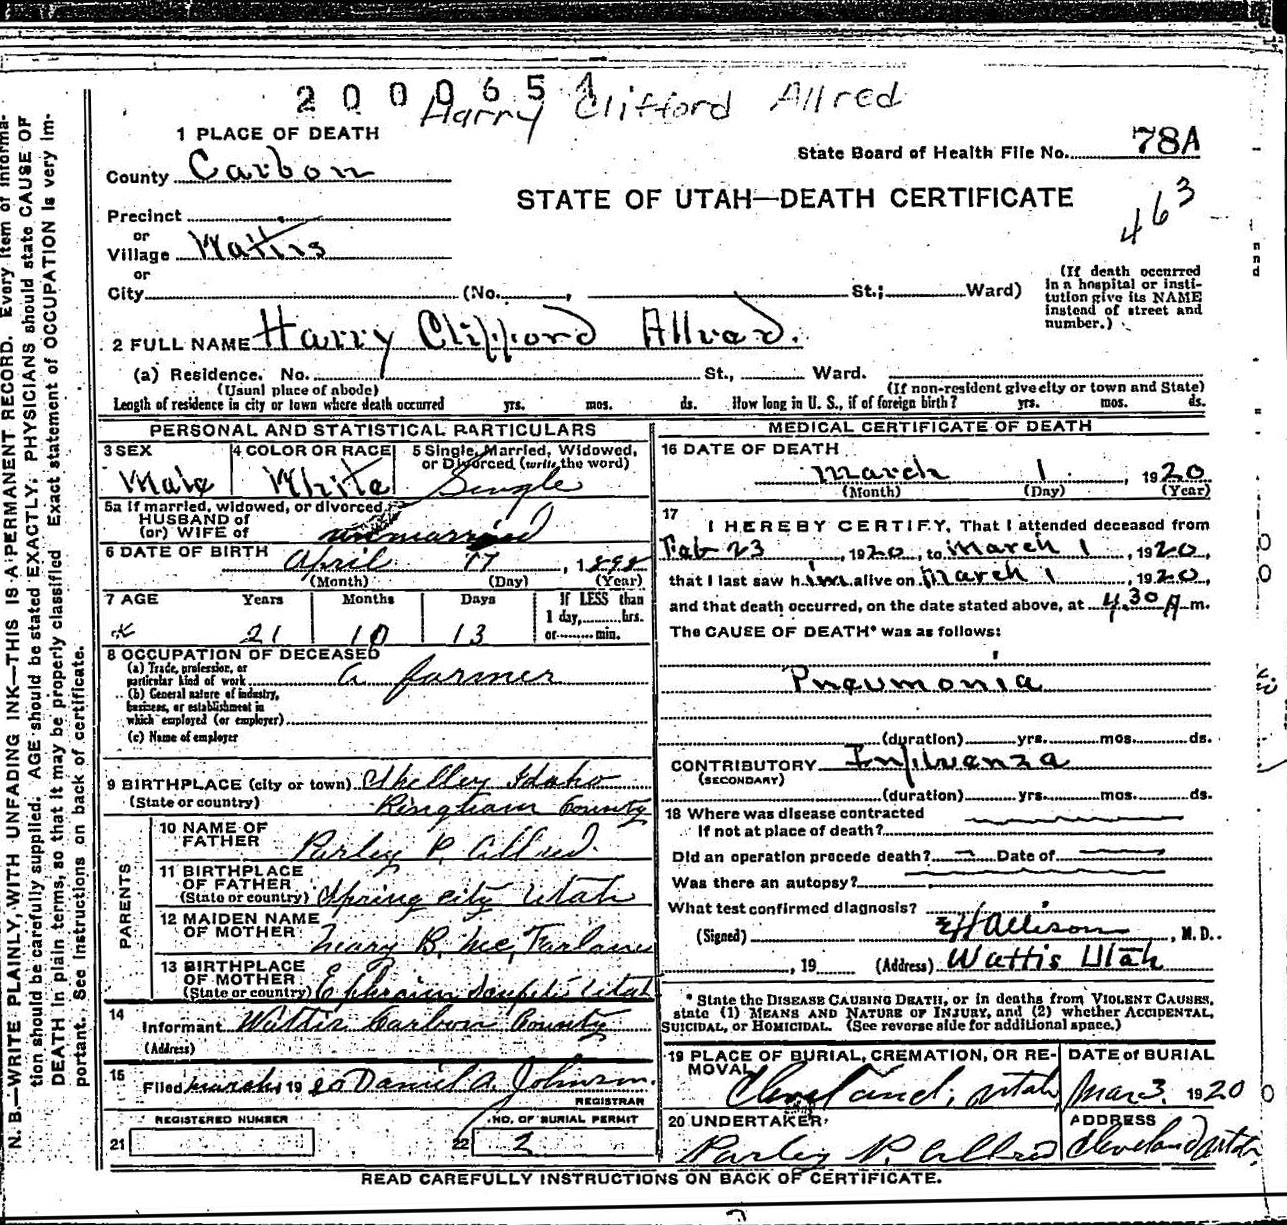 2000654
Harry Clifford Allred
1 PLACE OF DEATH
State Board of Health File No. 78A
County Carbon
STATE OF UTAH—DEATH CERTIFICATE
463
Precinct
or
Village Wattis
or
City (No. , St.; Ward)
(If death occurred in a hospital or institution give its NAME instead of street and number.)
2 FULL NAME Harry Clifford Allred.
(a) Residence. No. St., Ward.
(Usual place of abode) (If non-resident give city or town and State)
Length of residence in city or town where death occurred yrs. mos. ds. How long in U. S., if of foreign birth? yrs. mos. ds.
PERSONAL AND STATISTICAL PARTICULARS
3 SEX Male
4 COLOR OR RACE White
5 Single, Married, Widowed, or Divorced (write the word) Single
5a If married, widowed, or divorced
HUSBAND of
(or) WIFE of unmarried
6 DATE OF BIRTH April 17, 1898
(Month) (Day) (Year)
7 AGE Years Months Days If LESS than
1 day, hrs.
21 10 13 or min.
8 OCCUPATION OF DECEASED
(a) Trade, profession, or
particular kind of work a farmer
(b) General nature of industry,
business, or establishment in
which employed (or employer)
(c) Name of employer
9 BIRTHPLACE (city or town) Shelley Idaho
(State or country) Bingham County
PARENTS
10 NAME OF
FATHER Parley P. Allred.
11 BIRTHPLACE
OF FATHER
(State or country) Spring city Utah
12 MAIDEN NAME
OF MOTHER Mary B. Mc, Farlane
13 BIRTHPLACE
OF MOTHER
(State or country) Ephraim Sanpete Utah
14
Informant Wattis Carbon County
(Address)
15
Filed March, 1920 Daniel A. Johnson.
REGISTRAR
REGISTERED NUMBER NO. OF BURIAL PERMIT
21 22 2
MEDICAL CERTIFICATE OF DEATH
16 DATE OF DEATH
March 1, 1920
(Month) (Day) (Year)
17
I HEREBY CERTIFY, That I attended deceased from
Feb 23, 1920, to March 1, 1920,
that I last saw him alive on March 1, 1920,
and that death occurred, on the date stated above, at 4.30 A m.
The CAUSE OF DEATH* was as follows:
Pneumonia
(duration) yrs. mos. ds.
CONTRIBUTORY Influenza
(SECONDARY)
(duration) yrs. mos. ds.
18 Where was disease contracted
if not at place of death?
Did an operation precede death? — Date of
Was there an autopsy?
What test confirmed diagnosis?
(Signed) E H Allison, M. D.
, 19 (Address) Wattis Utah
* State the DISEASE CAUSING DEATH, or in deaths from VIOLENT CAUSES,
state (1) MEANS AND NATURE OF INJURY, and (2) whether ACCIDENTAL,
SUICIDAL, or HOMICIDAL. (See reverse side for additional space.)
19 PLACE OF BURIAL, CREMATION, OR REMOVAL DATE of BURIAL
Cleveland, Utah Mar 3, 1920
20 UNDERTAKER ADDRESS
Parley P. Allred Cleveland Utah
READ CAREFULLY INSTRUCTIONS ON BACK OF CERTIFICATE.
N. B.—WRITE PLAINLY, WITH UNFADING INK—THIS IS A PERMANENT RECORD. Every item of information should be carefully supplied. AGE should be stated EXACTLY. PHYSICIANS should state CAUSE OF DEATH in plain terms, so that it may be properly classified. Exact statement of OCCUPATION is very important. See instructions on back of certificate.